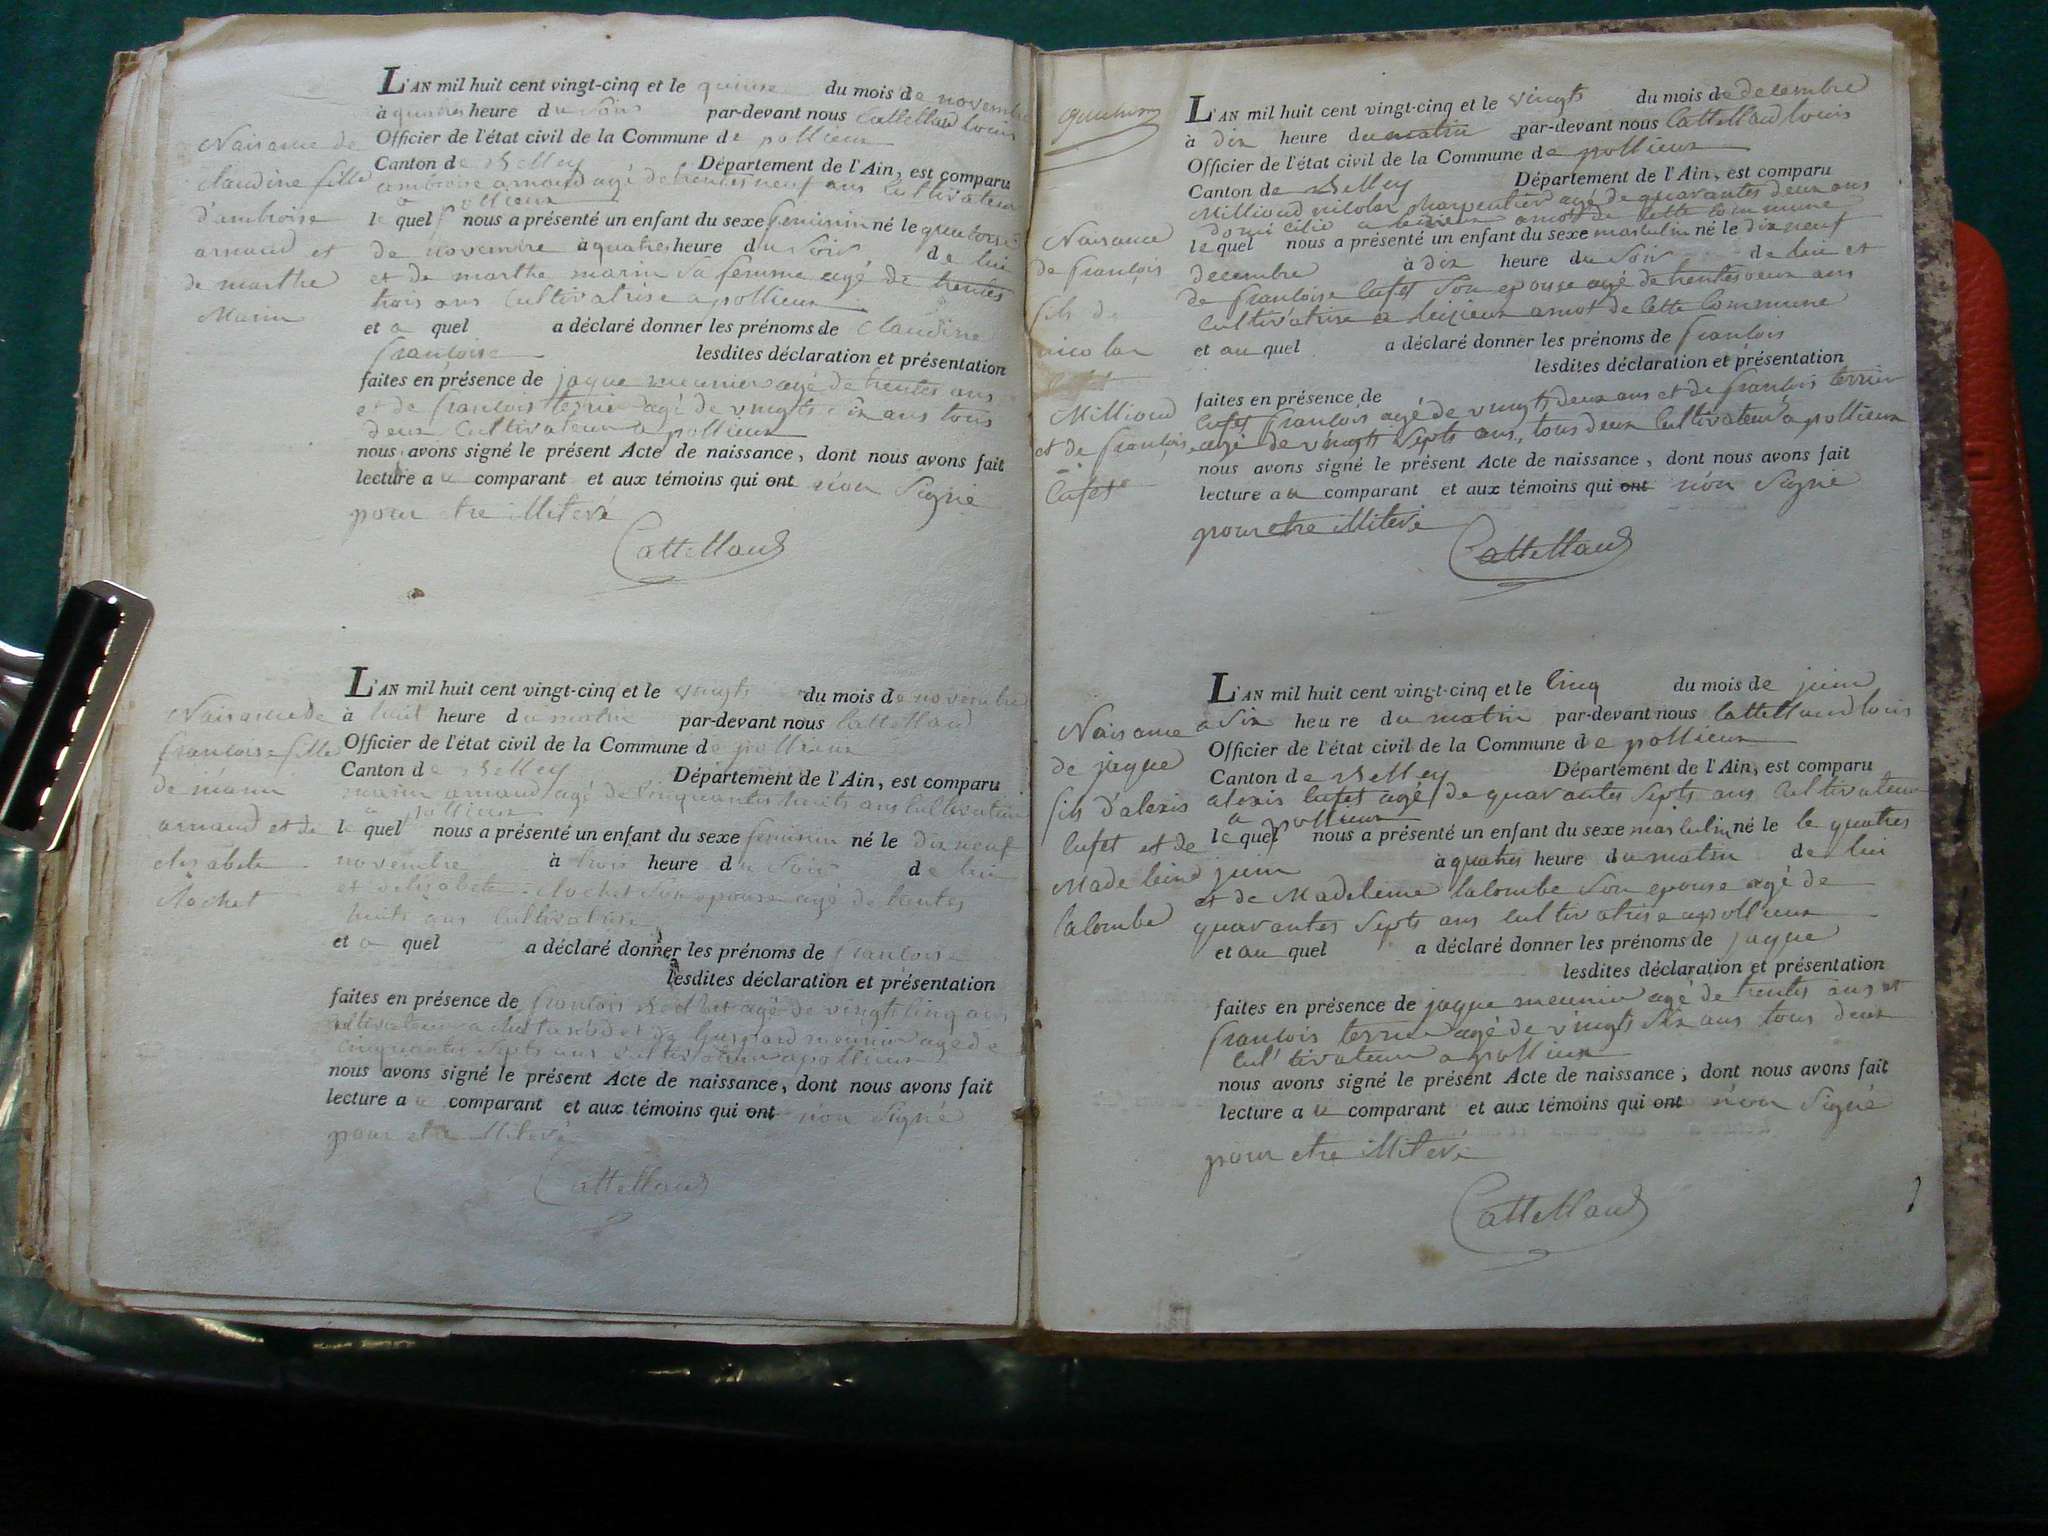 Naisance de
claudine fille
d'ambroise
arnaud et
de marthe
Marin
L'AN mil huit cent vingt-cinq et le quinse du mois de novembre
à quatres heure du soir par-devant nous Cattelland louis
Officier de l'état civil de la Commune de pollieux
Canton de Belley Département de l'Ain, est comparu
ambroise arnaud agé de trentes neuf ans cultivateur
a pollieux
le quel nous a présenté un enfant du sexe feminin né le quatorse
de novembre à quatres heure du soir de lui
et de marthe marin sa femme agé de trentes
trois ans cultivatrise a pollieux
et a quel a déclaré donner les prénoms de claudine
francoise lesdites déclaration et présentation
faites en présence de jaque meunier agé de trentes ans
et de francois terrier agé de vingts six ans tous
deux cultivateur a pollieux
nous avons signé le présent Acte de naissance, dont nous avons fait
lecture au comparant et aux témoins qui ont non signé
pour etre illiteré
Cattelland
Naisance de
francoise fille
de marin
arnaud et de
elisabete
clochet
L'AN mil huit cent vingt-cinq et le vingts du mois de novembre
à huit heure du matin par-devant nous Cattelland
Officier de l'état civil de la Commune de pollieux
Canton de Belley Département de l'Ain, est comparu
marin arnaud agé de cinquantes huits ans cultivateur
a pollieux
le quel nous a présenté un enfant du sexe feminin né le dix neuf
novembre à trois heure du soir de lui
et delisabete clochet son epouse agé de trentes
huits ans cultivatrise
et a quel a déclaré donner les prénoms de francoise
lesdites déclaration et présentation
faites en présence de francois agé de vingt cinq ans
cultivateur a et de meunier age de
cinquantes septs ans cultivateur a pollieux
nous avons signé le présent Acte de naissance, dont nous avons fait
lecture au comparant et aux témoins qui ont non signé
pour etre illiteré
Cattelland
Naisance
de francois
fils de
nicolas
Millioud
et de francois
Cufet
L'AN mil huit cent vingt-cinq et le vingts du mois de decembre
à dix heure du matin par-devant nous Cattelland louis
Officier de l'état civil de la Commune de pollieux
Canton de Belley Département de l'Ain, est comparu
Millioud nicolas charpentier agé de quarantes deux ans
domicilié a amot de cette commune
le quel nous a présenté un enfant du sexe masculin né le dix neuf
decembre à dix heure du soir de lui et
de francoise cufet son epouse agé de trentes deux ans
cultivatrise a amot de cette commune
et au quel a déclaré donner les prénoms de francois
lesdites déclaration et présentation
faites en présence de
cufet francois agé de vingts deux ans et de francois terrier
agé de vingts septs ans, tous deux cultivateur a pollieux
nous avons signé le présent Acte de naissance, dont nous avons fait
lecture au comparant et aux témoins qui ont non signé
pour etre illiteré
Cattelland
Naisance
de jaque
fils d'alexis
cufet et de
Madeleine
lacombe
L'AN mil huit cent vingt-cinq et le cinq du mois de juin
à six heure du matin par-devant nous Cattelland louis
Officier de l'état civil de la Commune de pollieux
Canton de Belley Département de l'Ain, est comparu
alexis cufet agé de quarantes septs ans cultivateur
a pollieux
le quel nous a présenté un enfant du sexe masculin né le le quatres
juin à quatres heure du matin de lui
et de Madeleine lacombe son epouse agé de
quarantes septs ans cultivatrise a pollieux
et au quel a déclaré donner les prénoms de jaque
lesdites déclaration et présentation
faites en présence de jaque meunier agé de trentes ans et
francois terrier agé de vingts six ans tous deux
cultivateur a pollieux
nous avons signé le présent Acte de naissance, dont nous avons fait
lecture au comparant et aux témoins qui ont non signé
pour etre illiteré
Cattelland